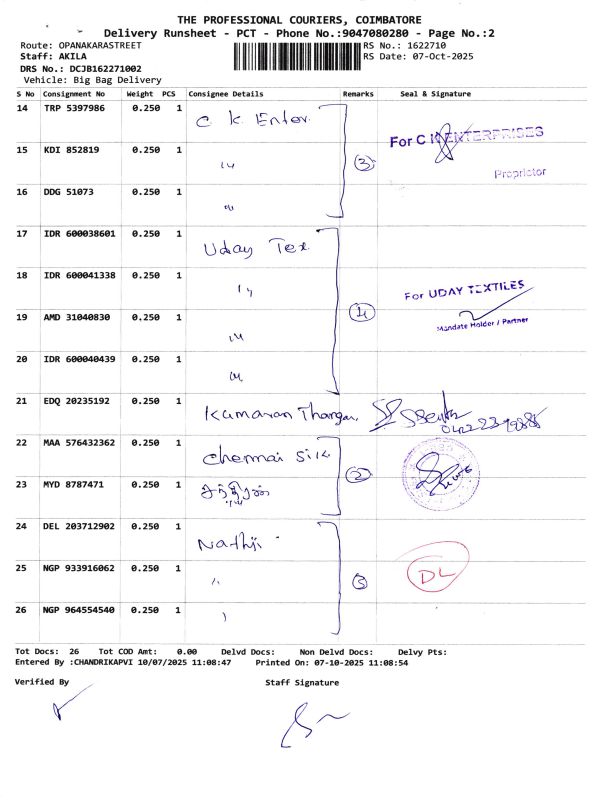 THE PROFESSIONAL COURIERS, COIMBATORE
Delivery Runsheet - PCT - Phone No.:9047080280 - Page No.:2
Route: OPANAKARASTREET RS No.: 1622710
Staff: AKILA RS Date: 07-Oct-2025
DRS No.: DCJB162271002
Vehicle: Big Bag Delivery
S No Consignment No Weight PCS Consignee Details Remarks Seal & Signature
14 TRP 5397986 0.250 1 C K Enter.
For C K ENTERPRISES
15 KDI 852819 0.250 1 3
Proprietor
16 DDG 51073 0.250 1
17 IDR 600038601 0.250 1 Uday Tex
18 IDR 600041338 0.250 1
For UDAY TEXTILES
19 AMD 31040830 0.250 1 4
Mandate Holder / Partner
20 IDR 600040439 0.250 1
21 EDQ 20235192 0.250 1 Kumaran
22 MAA 576432362 0.250 1 Chennai Silk
23 MYD 8787471 0.250 1 2
24 DEL 203712902 0.250 1 Nathji
25 NGP 933916062 0.250 1 3 DL
26 NGP 964554540 0.250 1
Tot Docs: 26 Tot COD Amt: 0.00 Delvd Docs: Non Delvd Docs: Delvy Pts:
Entered By :CHANDRIKAPVI 10/07/2025 11:08:47 Printed On: 07-10-2025 11:08:54
Verified By Staff Signature